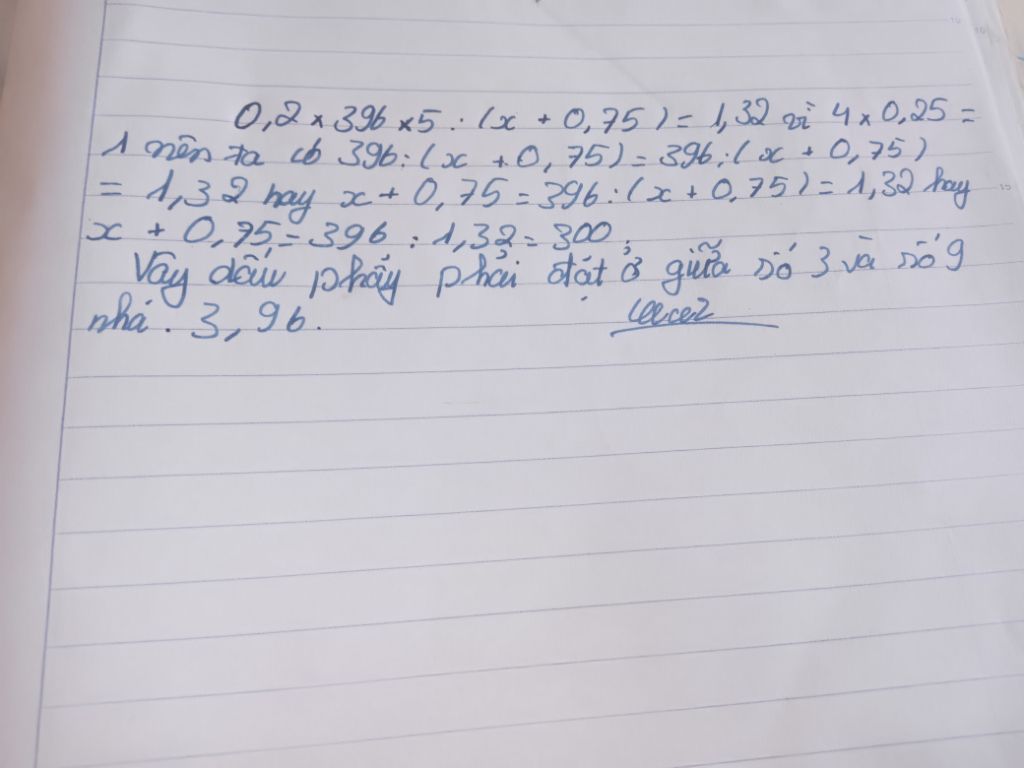 0,2 × 396 × 5 : (x + 0,75) = 1,32 vì 4 × 0,25 =
1 nên ta có 396 : (x + 0,75) = 396 : (x + 0,75)
= 1,32 hay x + 0,75 = 396 : (x + 0,75) = 1,32 hay
x + 0,75 = 396 : 1,32 = 300.
Vậy dấu phẩy phải đặt ở giữa số 3 và số 9
nhá. 3,96.